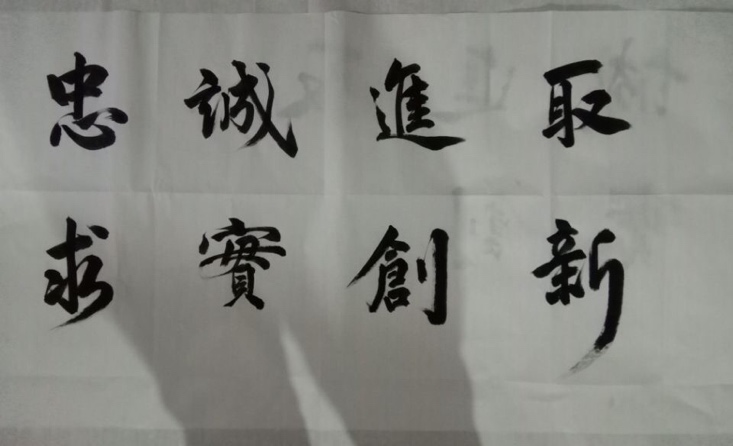 忠誠進取
求實創新